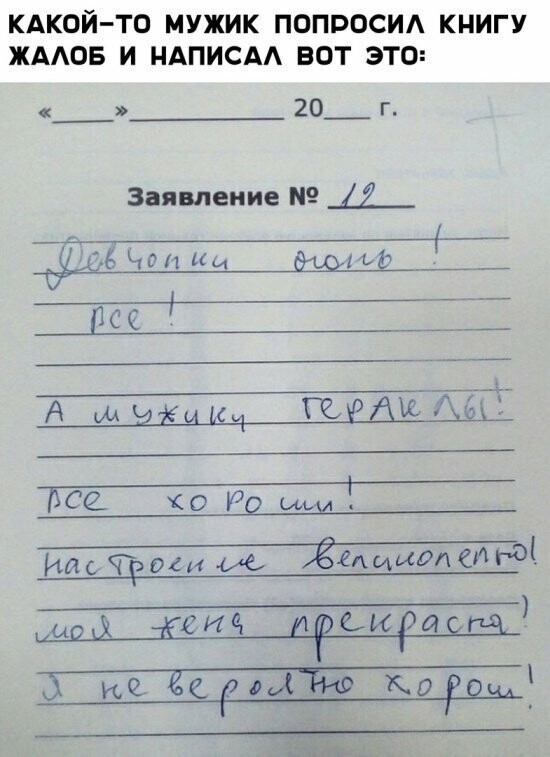 КАКОЙ-ТО МУЖИК ПОПРОСИЛ КНИГУ
ЖАЛОБ И НАПИСАЛ ВОТ ЭТО:
«____»____________ 20___ г.
Заявление № 12
Девчонки огонь!
Все!
А мужики ГЕРАКЛЫ!
Все хороши!
Настроение великолепно!
моя жена прекрасна!
Я не вероятно хорош!